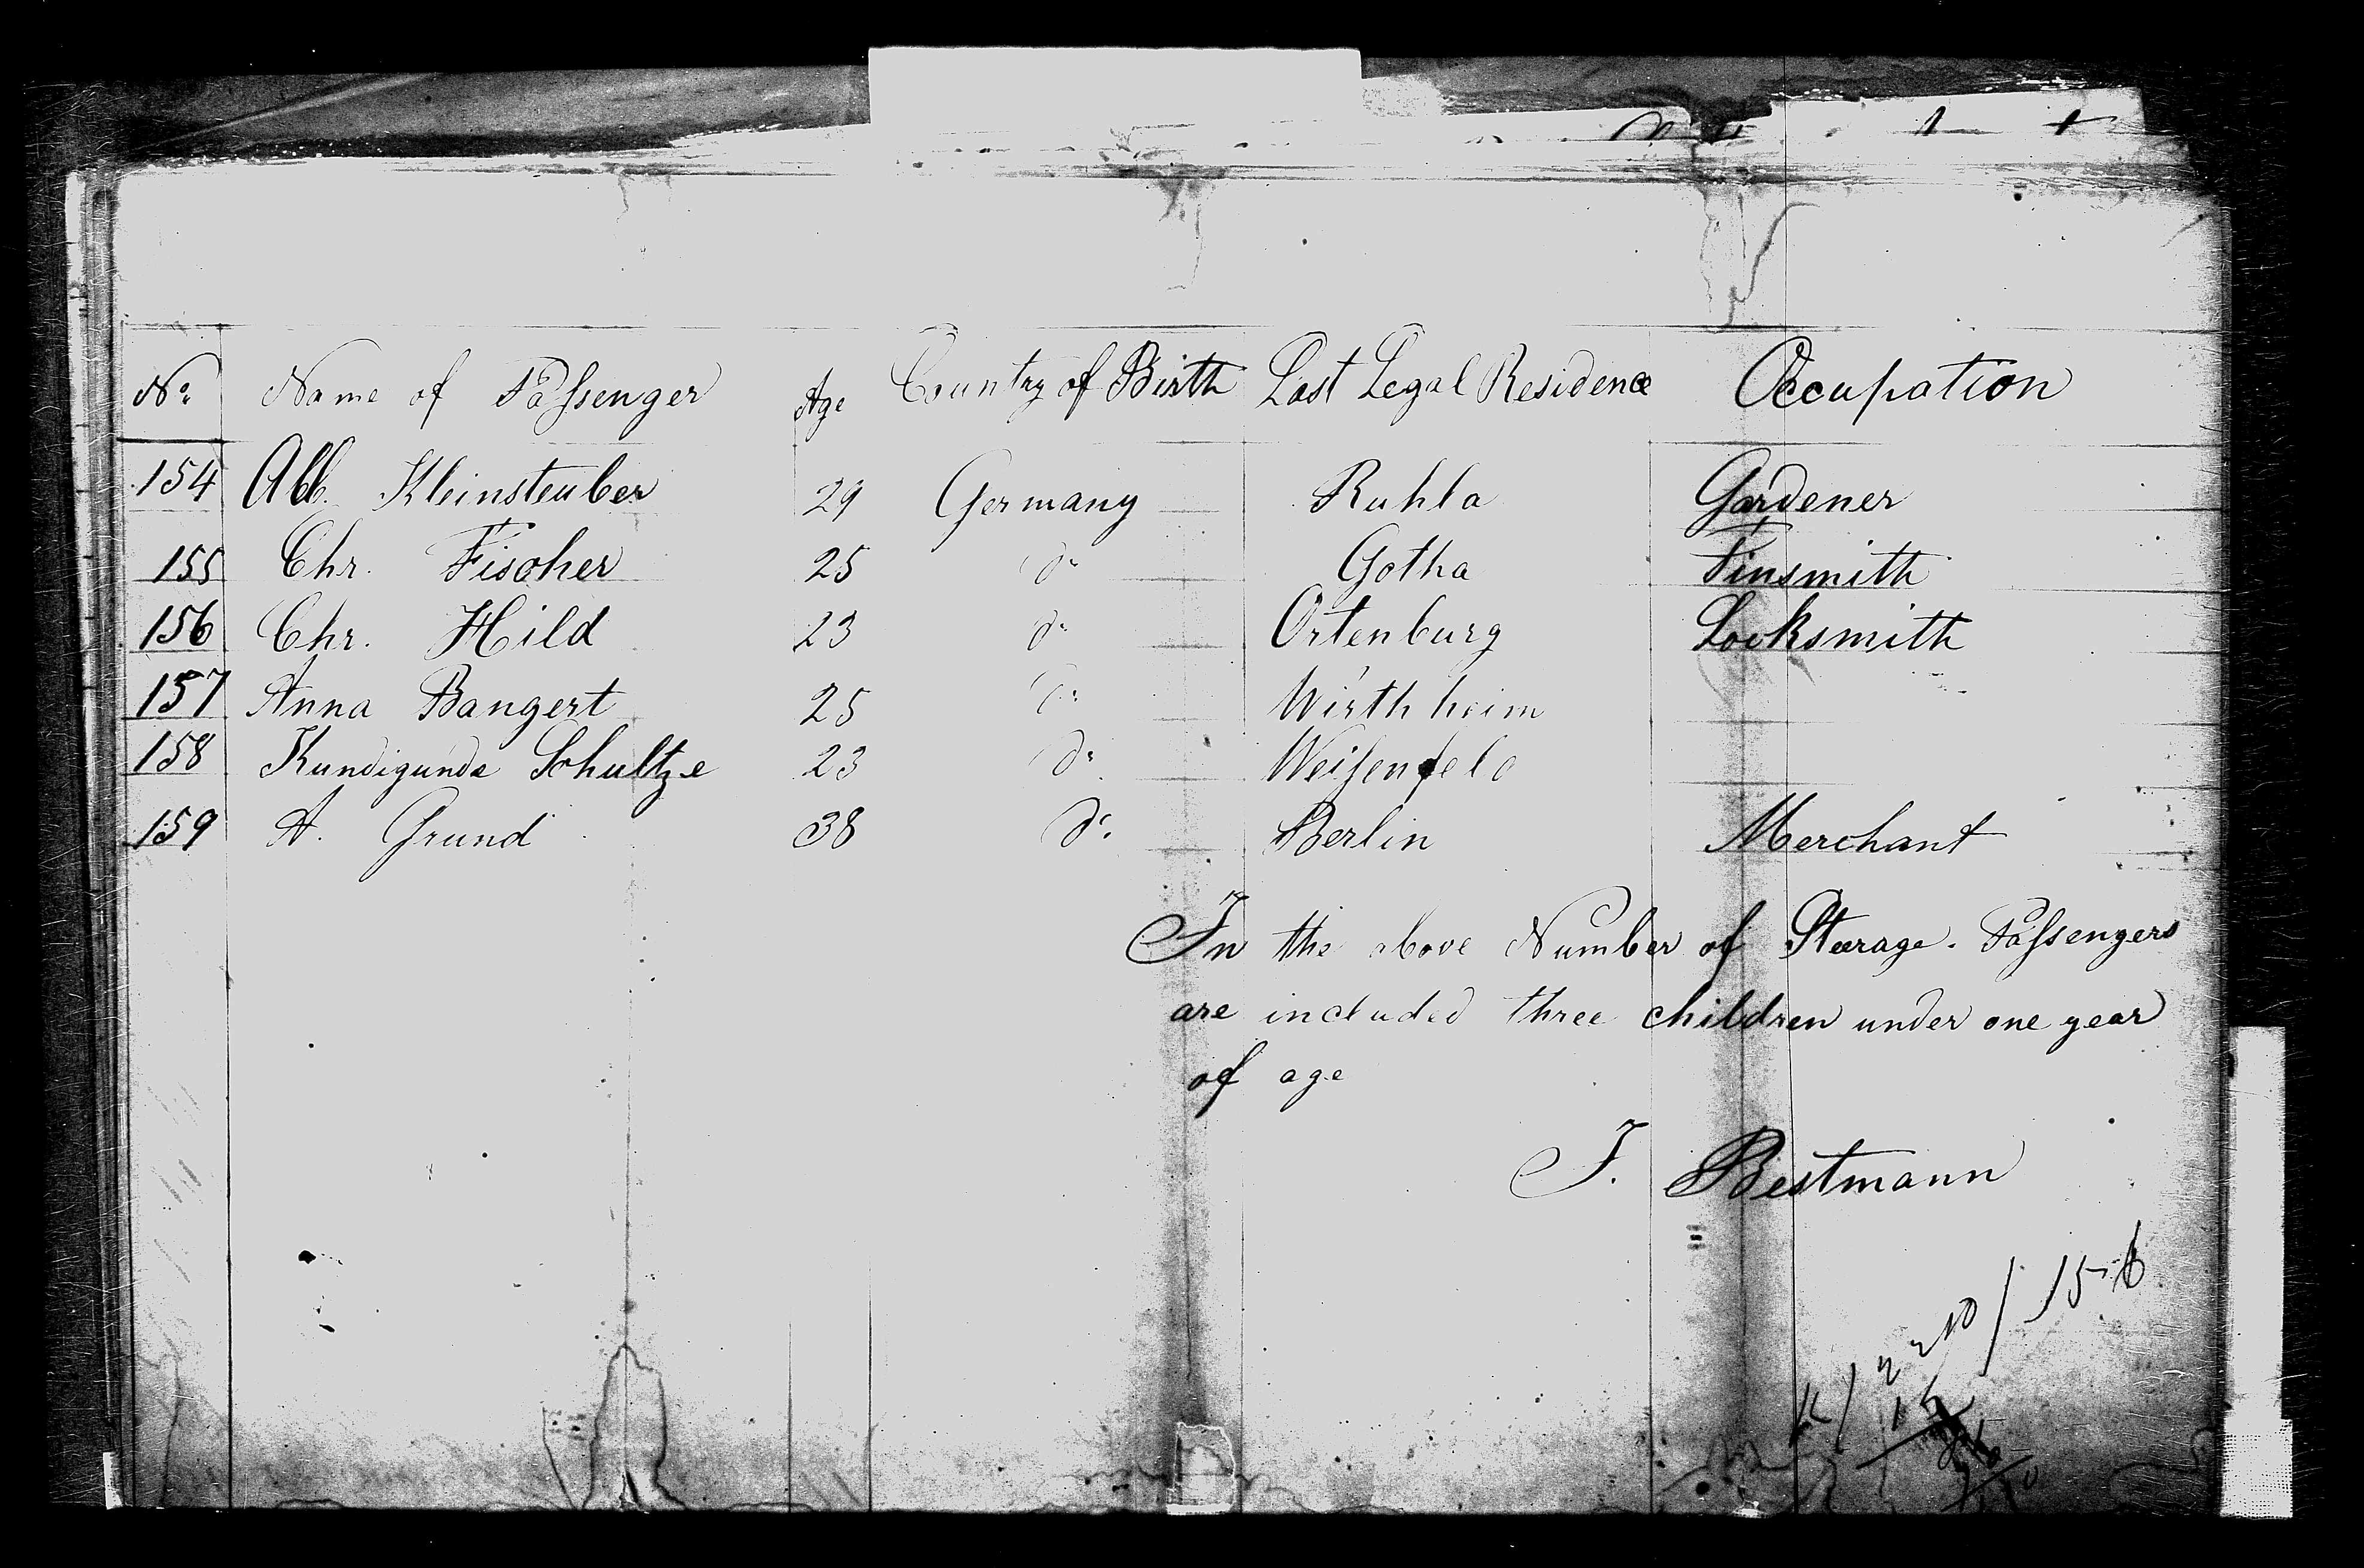 No. Name of Passenger Age Country of Birth Last Legal Residence Occupation
154 Alb. Kleinsteuber 29 Germany Ruhla Gardener
155 Chr. Fischer 25 do Gotha Tinsmith
156 Chr. Hild 23 do Ortenburg Locksmith
157 Anna Bangert 25 do Wirthheim
158 Kundigunde Schultze 23 do Weißenfeld
159 A. Grund 38 do Berlin Merchant
In the above Number of Steerage-Passengers
are included three children under one year
of age
J. Bestmann
156